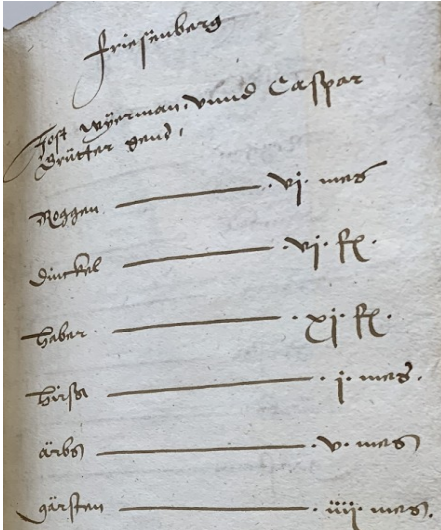 Friesenberg
Jost Wÿerman, vnnd Caspar
Grütter gend,
Roggen — .vj. mes
Dinckel — .vj. fl.
Haber — .xj. fl.
Hirss — . j. mes.
ärbs — . v. mes
gärsten — . iiij. mes.